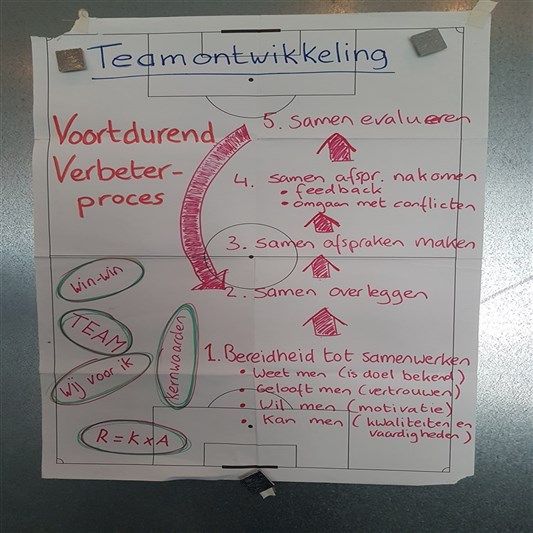 Teamontwikkeling
Voortdurend
Verbeter-
proces
5. samen evalueren
4. samen afspr. nakomen
• feedback
• omgaan met conflicten
3. samen afspraken maken
2. samen overleggen
1. Bereidheid tot samenwerken
• Weet men (is doel bekend)
• Gelooft men (vertrouwen)
• Wil men (motivatie)
• Kan men (kwaliteiten en
vaardigheden)
win-win
TEAM
Wij voor ik
Kernwaarden
R = K x A